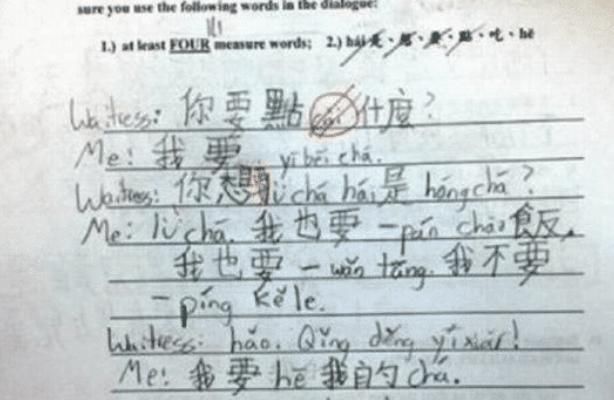 sure you use the following words in the dialogue:
1.) at least FOUR measure words; 2.) hái 是、想、要、點、吃、hē
Waitress: 你要點 什麼?
Me: 我要 yī bēi chá.
Waitress: 你想 lǜ chá hái是 hóng chá?
Me: lǜ chá. 我也要一pán chǎo飯,
我也要一wǎn tāng. 我不要
一píng kě le.
Waitress: hǎo. Qǐng děng yíxiàr!
Me: 我要 hē 我的 chá.